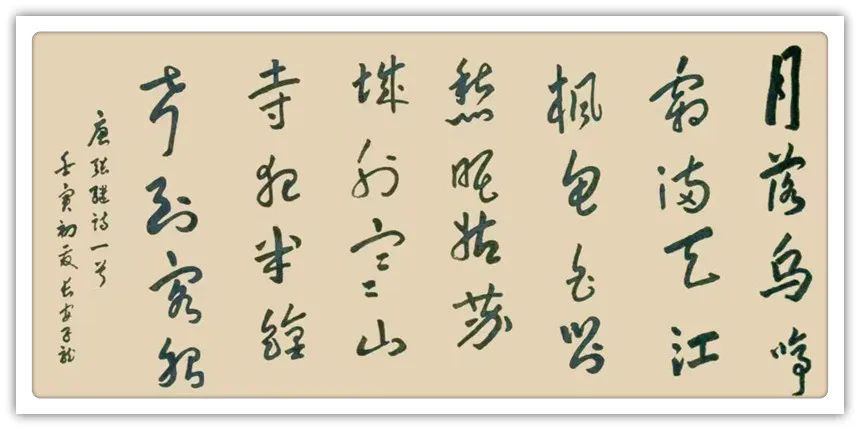 月落乌啼
霜满天江
枫渔火对
愁眠姑苏
城外寒山
寺夜半钟
声到客船
唐张继诗一首
壬寅初夏长安子龙